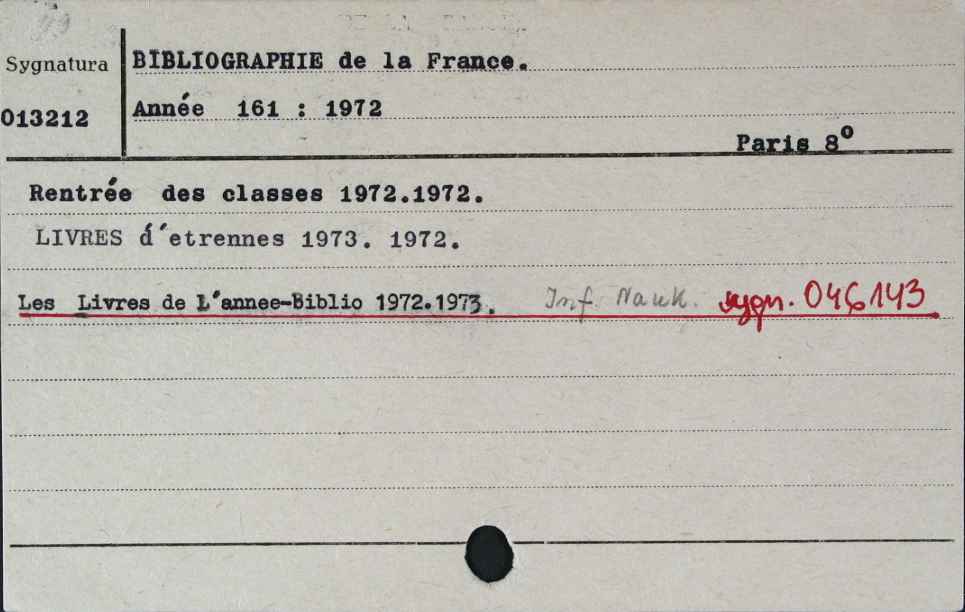 Sygnatura
BIBLIOGRAPHIE de la France.
013212
Année 161 : 1972
Paris 8º
Rentrée des classes 1972.1972.
LIVRES d´etrennes 1973. 1972.
Les Livres de L´annee-Biblio 1972.1973. Inf. Nauk. sygn. 046143